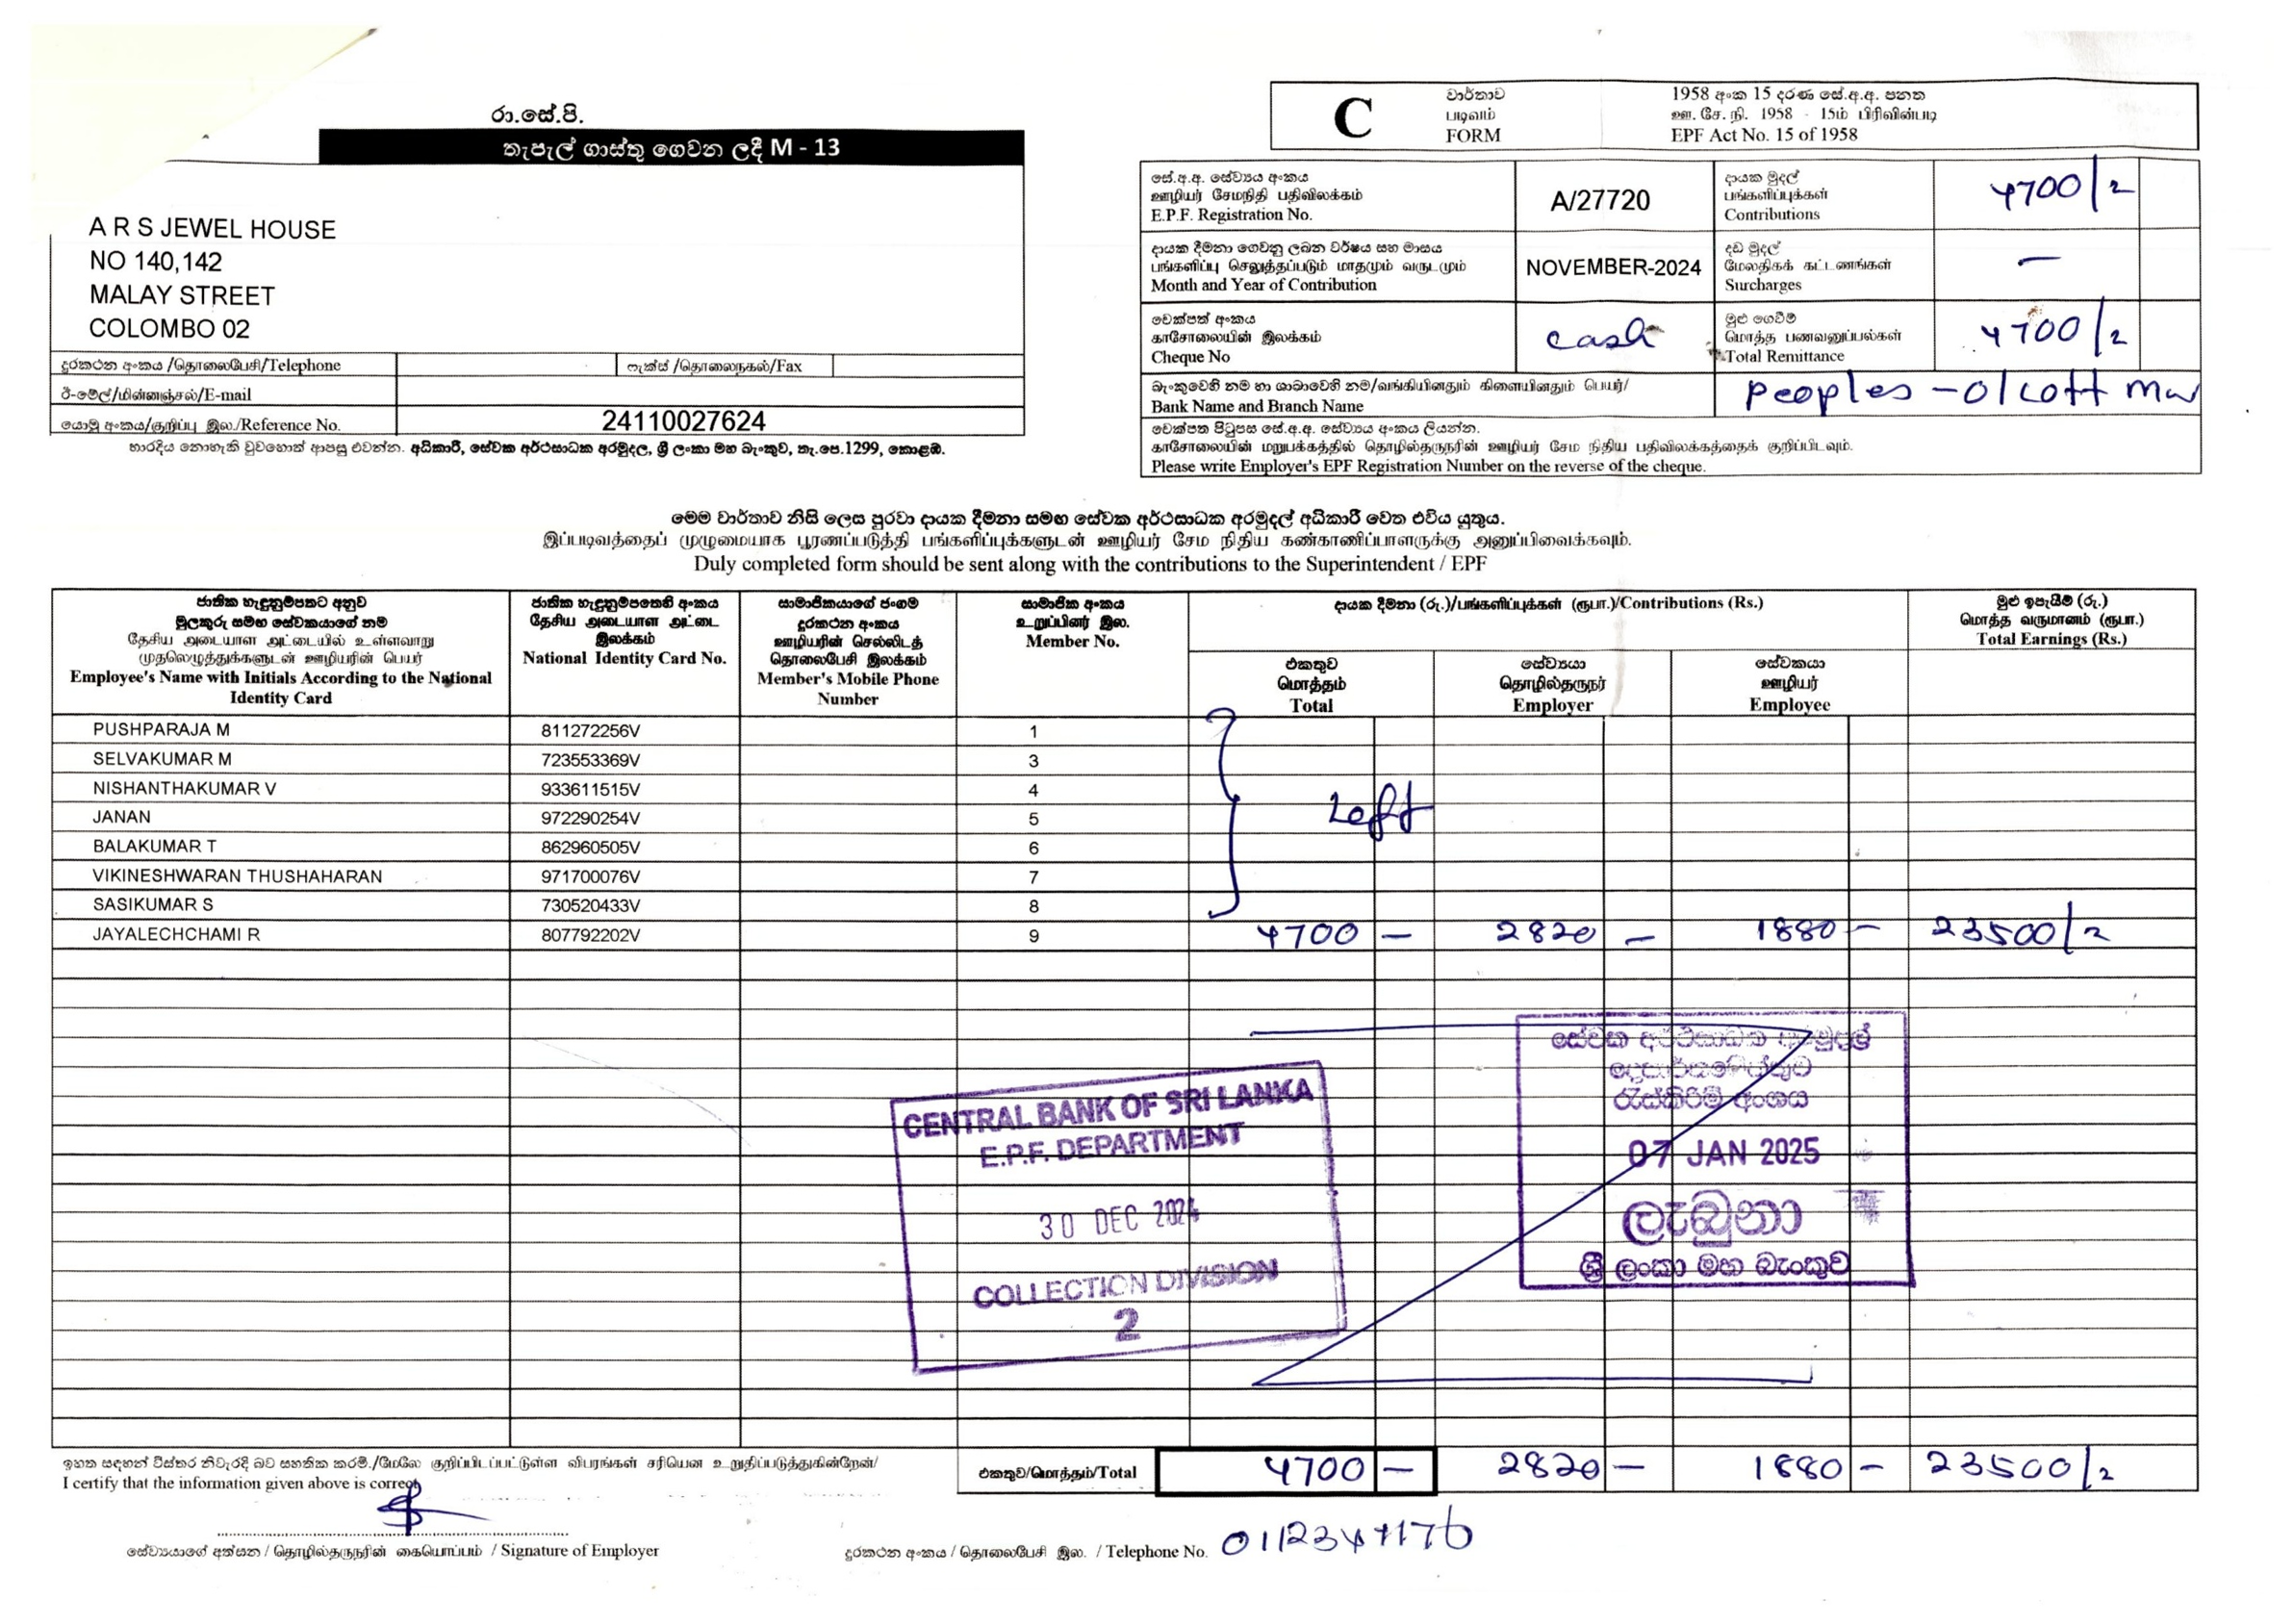 රා.සේ.පි.
තැපැල් ගාස්තු ගෙවන ලදී M - 13
A R S JEWEL HOUSE
NO 140,142
MALAY STREET
COLOMBO 02
දුරකථන අංකය /தொலைபேசி/Telephone
ෆැක්ස් /தொலைநகல்/Fax
ඊ-මේල්/மின்னஞ்சல்/E-mail
යොමු අංකය/குறிப்பு இல./Reference No. 24110027624
භාරදිය නොහැකි වුවහොත් ආපසු එවන්න. අධිකාරී, සේවක අර්ථසාධක අරමුදල, ශ්‍රී ලංකා මහ බැංකුව, තැ.පෙ.1299, කොළඹ.
C
වාර්තාව
படிவம்
FORM
1958 අංක 15 දරණ සේ.අ.අ. පනත
ஊ. சே. நி. 1958 - 15ம் பிரிவின்படி
EPF Act No. 15 of 1958
සේ.අ.අ. සේව්‍යය අංකය
ஊழியர் சேமநிதி பதிவிலக்கம்
E.P.F. Registration No.
A/27720
දායක මුදල්
பங்களிப்புக்கள்
Contributions
4700/2
දායක දීමනා ගෙවනු ලබන වර්ෂය සහ මාසය
பங்களிப்பு செலுத்தப்படும் மாதமும் வருடமும்
Month and Year of Contribution
NOVEMBER-2024
දඩ මුදල්
மேலதிகக் கட்டணங்கள்
Surcharges
—
චෙක්පත් අංකය
காசோலையின் இலக்கம்
Cheque No
cash
මුළු ගෙවීම්
மொத்த பணவனுப்பல்கள்
Total Remittance
4700/2
බැංකුවෙහි නම හා ශාඛාවෙහි නම/வங்கியினதும் கிளையினதும் பெயர்/
Bank Name and Branch Name
Peoples - Olcott Mw
චෙක්පත පිටුපස සේ.අ.අ. සේව්‍යය අංකය ලියන්න.
காசோலையின் மறுபக்கத்தில் தொழில்தருநரின் ஊழியர் சேம நிதிய பதிவிலக்கத்தைக் குறிப்பிடவும்.
Please write Employer's EPF Registration Number on the reverse of the cheque.
මෙම වාර්තාව නිසි ලෙස පුරවා දායක දීමනා සමඟ සේවක අර්ථසාධක අරමුදල් අධිකාරී වෙත එවිය යුතුය.
இப்படிவத்தைப் முழுமையாக பூரணப்படுத்தி பங்களிப்புக்களுடன் ஊழியர் சேம நிதிய கண்காணிப்பாளருக்கு அனுப்பிவைக்கவும்.
Duly completed form should be sent along with the contributions to the Superintendent / EPF
ජාතික හැඳුනුම්පතට අනුව
මුලකුරු සමඟ සේවකයාගේ නම
தேசிய அடையாள அட்டையில் உள்ளவாறு
முதலெழுத்துக்களுடன் ஊழியரின் பெயர்
Employee's Name with Initials According to the National
Identity Card
ජාතික හැඳුනුම්පතෙහි අංකය
தேசிய அடையாள அட்டை
இலக்கம்
National Identity Card No.
සාමාජිකයාගේ ජංගම
දුරකථන අංකය
ஊழியரின் செல்லிடத்
தொலைபேசி இலக்கம்
Member's Mobile Phone
Number
සාමාජික අංකය
உறுப்பினர் இல.
Member No.
දායක දීමනා (රු.)/பங்களிப்புக்கள் (ரூபா.)/Contributions (Rs.)
එකතුව
மொத்தம்
Total
සේව්‍යයා
தொழில்தருநர்
Employer
සේවකයා
ஊழியர்
Employee
මුළු ඉපැයීම් (රු.)
மொத்த வருமானம் (ரூபா.)
Total Earnings (Rs.)
PUSHPARAJA M 811272256V 1
SELVAKUMAR M 723553369V 3
NISHANTHAKUMAR V 933611515V 4
JANAN 972290254V 5
Left
BALAKUMAR T 862960505V 6
VIKINESHWARAN THUSHAHARAN 971700076V 7
SASIKUMAR S 730520433V 8
JAYALECHCHAMI R 807792202V 9 4700 — 2820 — 1880 — 23500/2
CENTRAL BANK OF SRI LANKA
E.P.F. DEPARTMENT
30 DEC 2024
COLLECTION DIVISION
2
සේවක අර්ථසාධක අරමුදල්
දෙපාර්තමේන්තුව
රැස්කිරීම් අංශය
07 JAN 2025
ලැබුනා
ශ්‍රී ලංකා මහ බැංකුව
ඉහත සඳහන් විස්තර නිවැරදි බව සහතික කරමි./மேலே குறிப்பிடப்பட்டுள்ள விபரங்கள் சரியென உறுதிப்படுத்துகின்றேன்/
I certify that the information given above is correct
එකතුව/மொத்தம்/Total 4700 — 2820 — 1880 — 23500/2
සේව්‍යයාගේ අත්සන / தொழில்தருநரின் கையொப்பம் / Signature of Employer
දුරකථන අංකය / தொலைபேசி இல. / Telephone No.